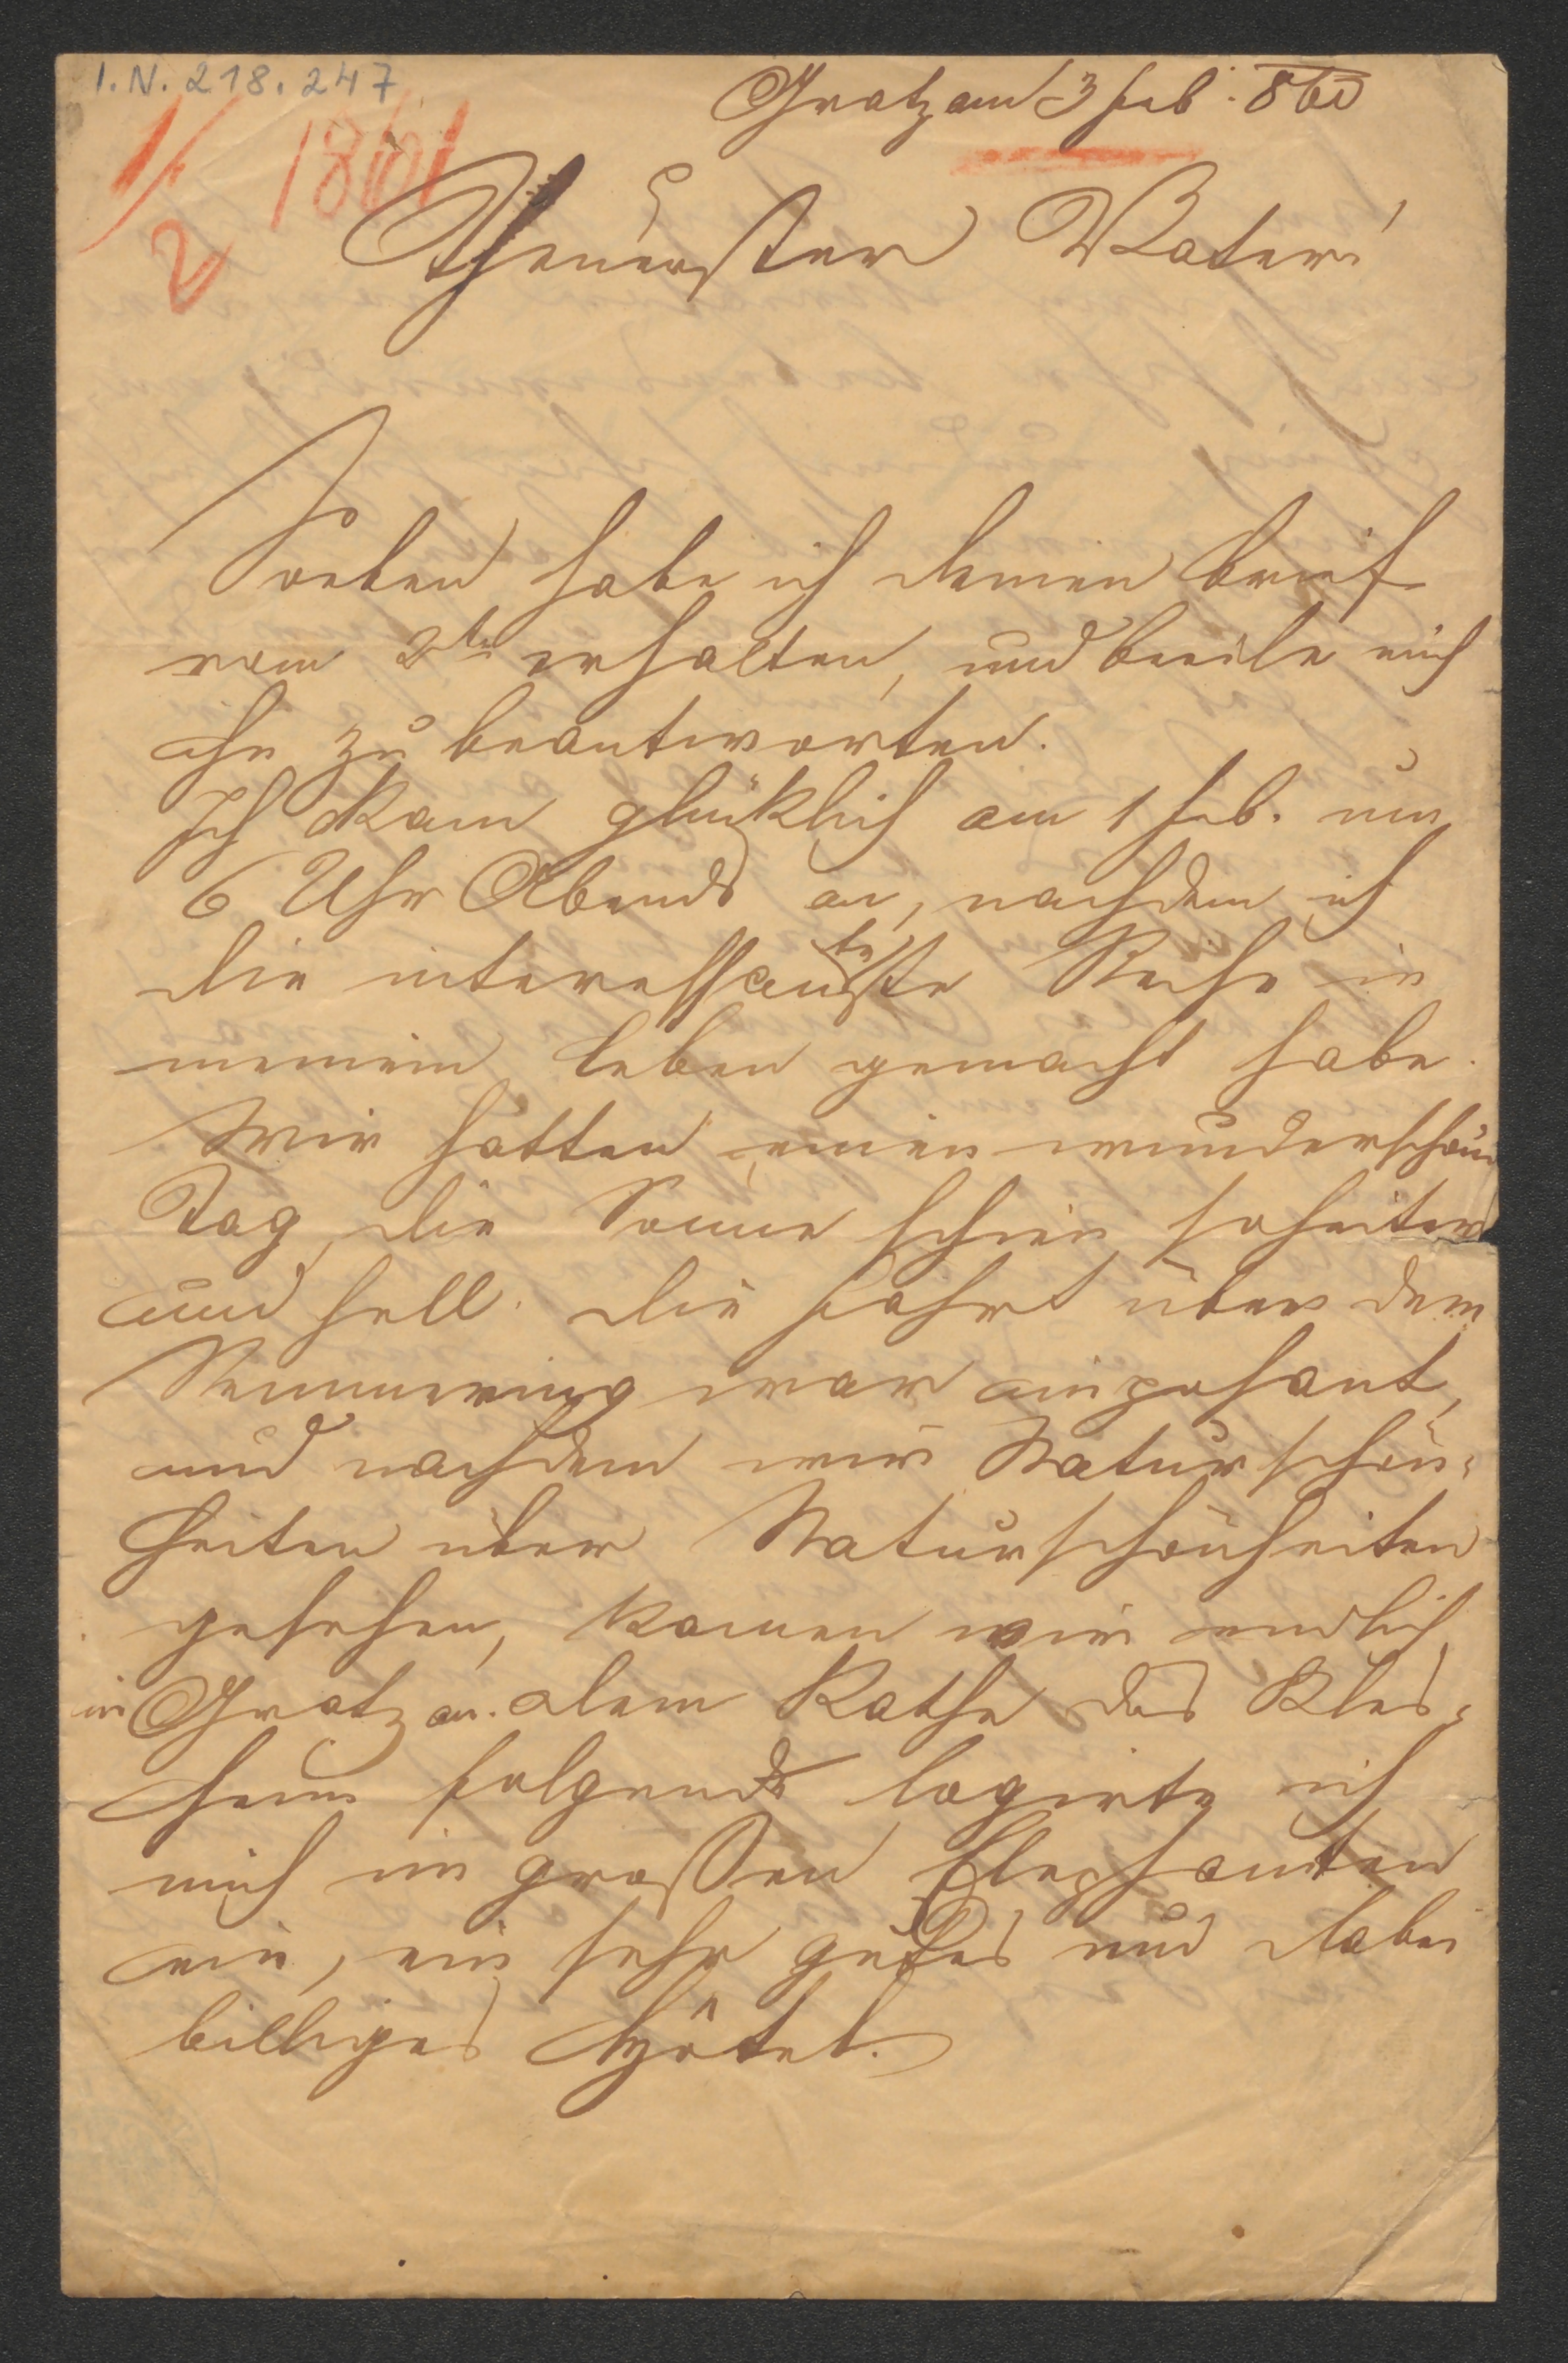 I.N. 218.247
1/2 1861
Gratz am 3 Feb. 861
Theuerster Vater!
Soeben habe ich deinen Brief
vom 2ten erhalten, und beeile mich
ihn zu beantworten.
Ich kam glücklich am 1 Feb. um
6 Uhr Abends an, nachdem ich
die interessanteste Reise in
meinem Leben gemacht habe.
Wir hatten einen wunderschönen
Tag, die Sonne schien so heiter
und hell. Die Fahrt über den
Semmering war imposant,
und nachdem wir Naturschön-
heiten über Naturschönheiten
gesehen, kamen wir endlich
in Gratz an. Dem Rathe des Kles-
heim folgend logirte ich
mich im großen Elephanten
ein, ein sehr gutes und dabei
billiges Hôtel.